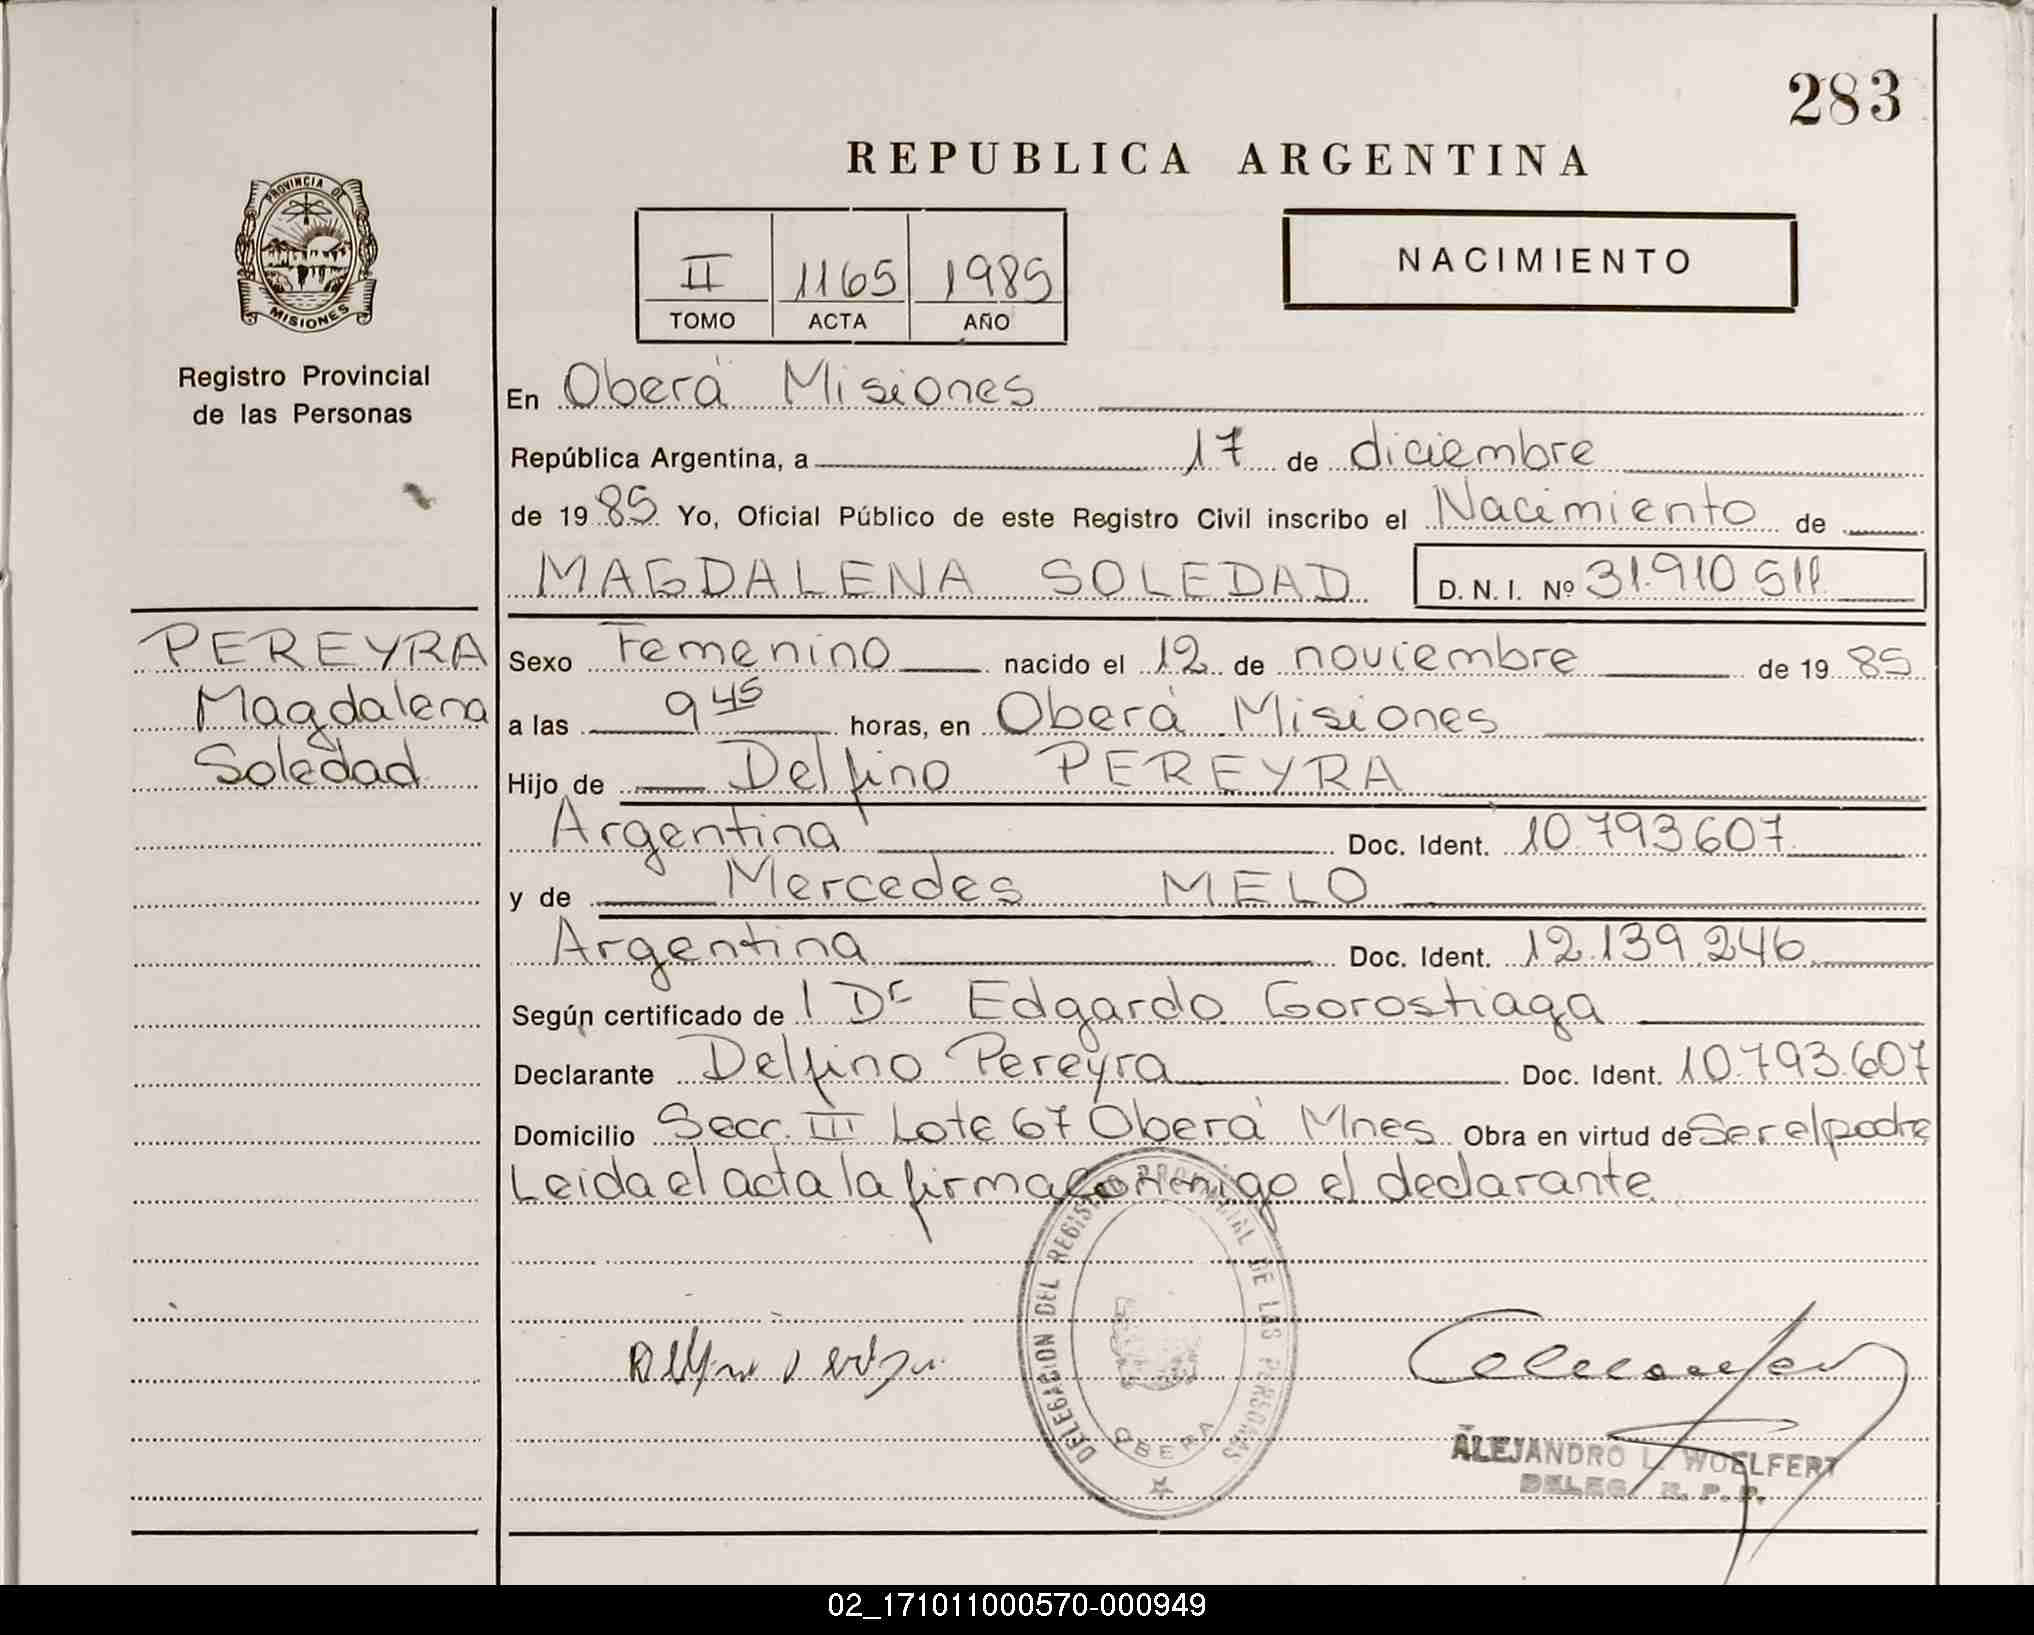 283
REPUBLICA ARGENTINA
PROVINCIA DE
MISIONES
Registro Provincial
de las Personas
II 1165 1985
TOMO ACTA AÑO
NACIMIENTO
En Oberá Misiones
República Argentina, a 17 de diciembre
de 1985 Yo, Oficial Público de este Registro Civil inscribo el Nacimiento de
MAGDALENA SOLEDAD D. N. I. Nº 31.910 511
PEREYRA
Magdalena
Soledad
Sexo Femenino nacido el 12 de noviembre de 1985
a las 9 45 horas, en Oberá Misiones
Hijo de Delfino PEREYRA
Argentina Doc. Ident. 10.793607
y de Mercedes MELO
Argentina Doc. Ident. 12.139.246
Según certificado de l Dr Edgardo Gorostiaga
Declarante Delfino Pereyra Doc. Ident. 10.793.607
Domicilio Secc. III Lote 67 Oberá Mnes Obra en virtud de Ser el padre
Leida el acta la firma conmigo el declarante
DELEGACION DEL REGISTRO PROVINCIAL DE LAS PERSONAS
OBERA
ALEJANDRO L. WOELFERT
DELEG. R. P. P.
02_171011000570-000949